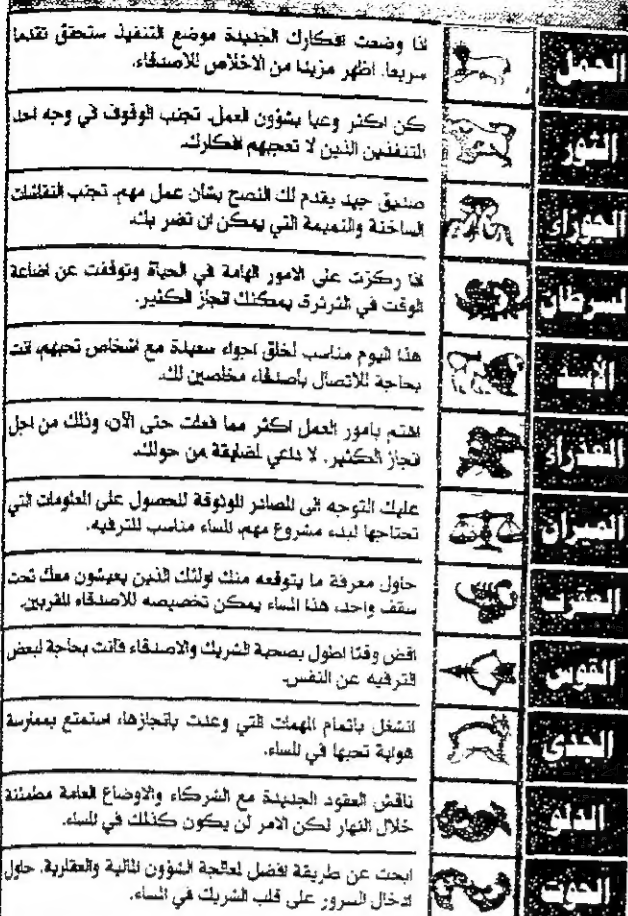 الحمل
اذا وضعت افكارك الجديدة موضع التنفيذ ستحقق تقدما
سريعا. اظهر مزيدا من الاخلاص للاصدقاء.
الثور
كن اكثر وعيا بشؤون العمل. تجنب الوقوف في وجه احد
المتنفذين الذين لا تعجبهم افكارك.
الجوزاء
صديق جيد يقدم لك النصح بشأن عمل مهم. تجنب النقاشات
الساخنة والنميمة التي يمكن ان تضر بك.
السرطان
اذا ركزت على الامور الهامة في الحياة وتوقفت عن اضاعة
الوقت في الثرثرة، يمكنك انجاز الكثير.
الأسد
هذا اليوم مناسب لخلق اجواء سعيدة مع اشخاص تحبهم، انت
بحاجة للاتصال بأصدقاء مخلصين لك.
العذراء
اهتم بامور العمل اكثر مما فعلت حتى الآن، وذلك من اجل
انجاز الكثير. لا داعي لمضايقة من حولك.
الميزان
عليك التوجه الى المصادر الموثوقة للحصول على المعلومات التي
تحتاجها لبدء مشروع مهم، المساء مناسب للترفيه.
العقرب
حاول معرفة ما يتوقعه منك اولئك الذين يعيشون معك تحت
سقف واحد، هذا المساء يمكن تخصيصه للاصدقاء المقربين.
القوس
اقض وقتا اطول بصحبة الشريك والاصدقاء فأنت بحاجة لبعض
الترفيه عن النفس.
الجدي
انشغل باتمام المهمات التي وعدت بانجازها، استمتع بممارسة
هواية تحبها في المساء.
الدلو
ناقش العقود الجديدة مع الشركاء والاوضاع العامة مطمئنة
خلال النهار لكن الامر لن يكون كذلك في المساء.
الحوت
ابحث عن طريقة افضل لمعالجة الشؤون المالية والعقارية. حاول
ادخال السرور على قلب الشريك في المساء.